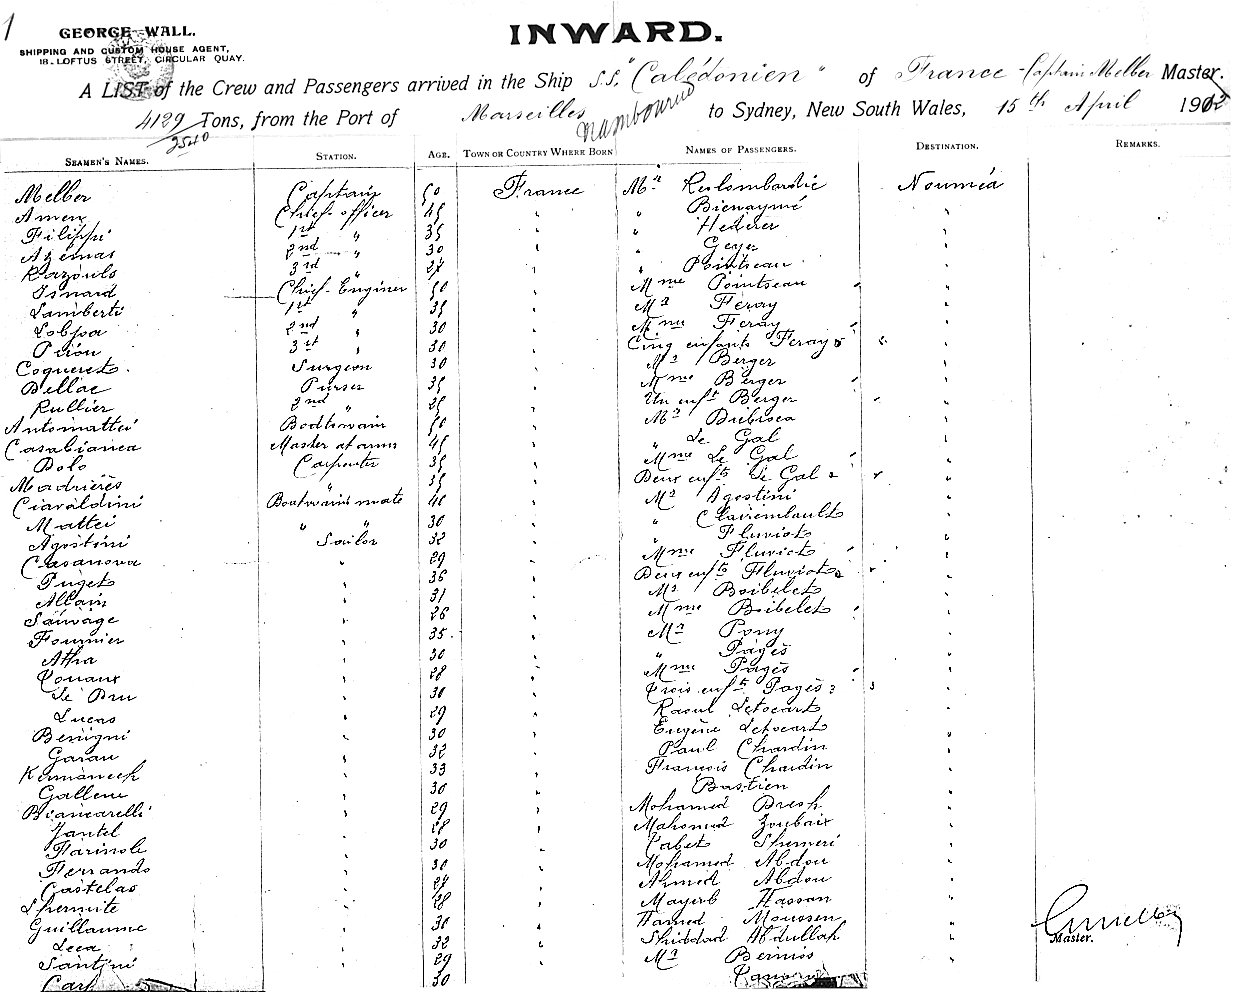 1
GEORGE WALL.
SHIPPING AND CUSTOM HOUSE AGENT,
18. LOFTUS STREET, CIRCULAR QUAY.
INWARD.
A LIST of the Crew and Passengers arrived in the Ship S.S. "Calédonien" of France - Captain Melber Master.
4129 Tons, from the Port of Marseilles to Sydney, New South Wales, 15th April 19
2540
SEAMEN'S NAMES. STATION. AGE. TOWN OR COUNTRY WHERE BORN NAMES OF PASSENGERS. DESTINATION. REMARKS.
Melber Captain 50 France Mr Nouméa
Amen Chief-officer 45 " " Bienaymé "
Filippi 1st " 35 " " Hederer "
Azémas 2nd " 30 " " Geyer "
Razouls 3rd " 27 " " Pointeau "
Isnard Chief-Enginer 50 " Mme Pointeau "
Lamberti 1st " 35 " Mr Feray "
2nd " 30 " Mme Feray "
Prion 3rd " 30 " Cinq enfants Feray 5 "
Coqueret Surgeon 30 " Mr Berger "
Bellac Purser 35 " Mme Berger "
Rullier 2nd " 25 " Un enft Berger "
Antomattei 50 " Mr Dubisca "
Casabianca Master at arms 45 " " Le Gal "
Bolo Carpenter 35 " Mme Le Gal "
Madrières " 35 " Deux enfts Le Gal 2 "
Ciavaldini Boatswains mate 40 " Mr Agostini "
Mattei " " 30 " " Clairembault "
Agostini Sailor 32 " " Fluviot "
Casanova " 29 " Mme Fluviot "
Puget " 36 " Deux enfts Fluviot 2 "
Allain " 31 " Mr Boibelet "
Sauvage " 26 " Mme Boibelet "
Fournier " 35 " Mr Pony "
Atha " 30 " " Pagès "
" 28 " Mme Pagès "
Le Bru " 30 " Trois enfts Pagès 3 "
Lucas " 29 " Raoul Letocart "
Benigni " 30 " Eugène Letocart "
Garau " 32 " Paul Chardin "
33 " François Chardin "
" 30 " Bastien "
Biancarelli " 29 " Mohamed "
Jantel " 28 " Mahomed Zoubair "
Farinole " 30 " "
Ferrando " 30 " Mohamed Abdou "
Castelas " 27 " Ahmed Abdou "
Lhermite " 28 " Hassan "
Guillaume " 30 " Hamed Moussen "
Leca " 32 " Abdullah "
Santini " 29 " Mr "
30
Master.